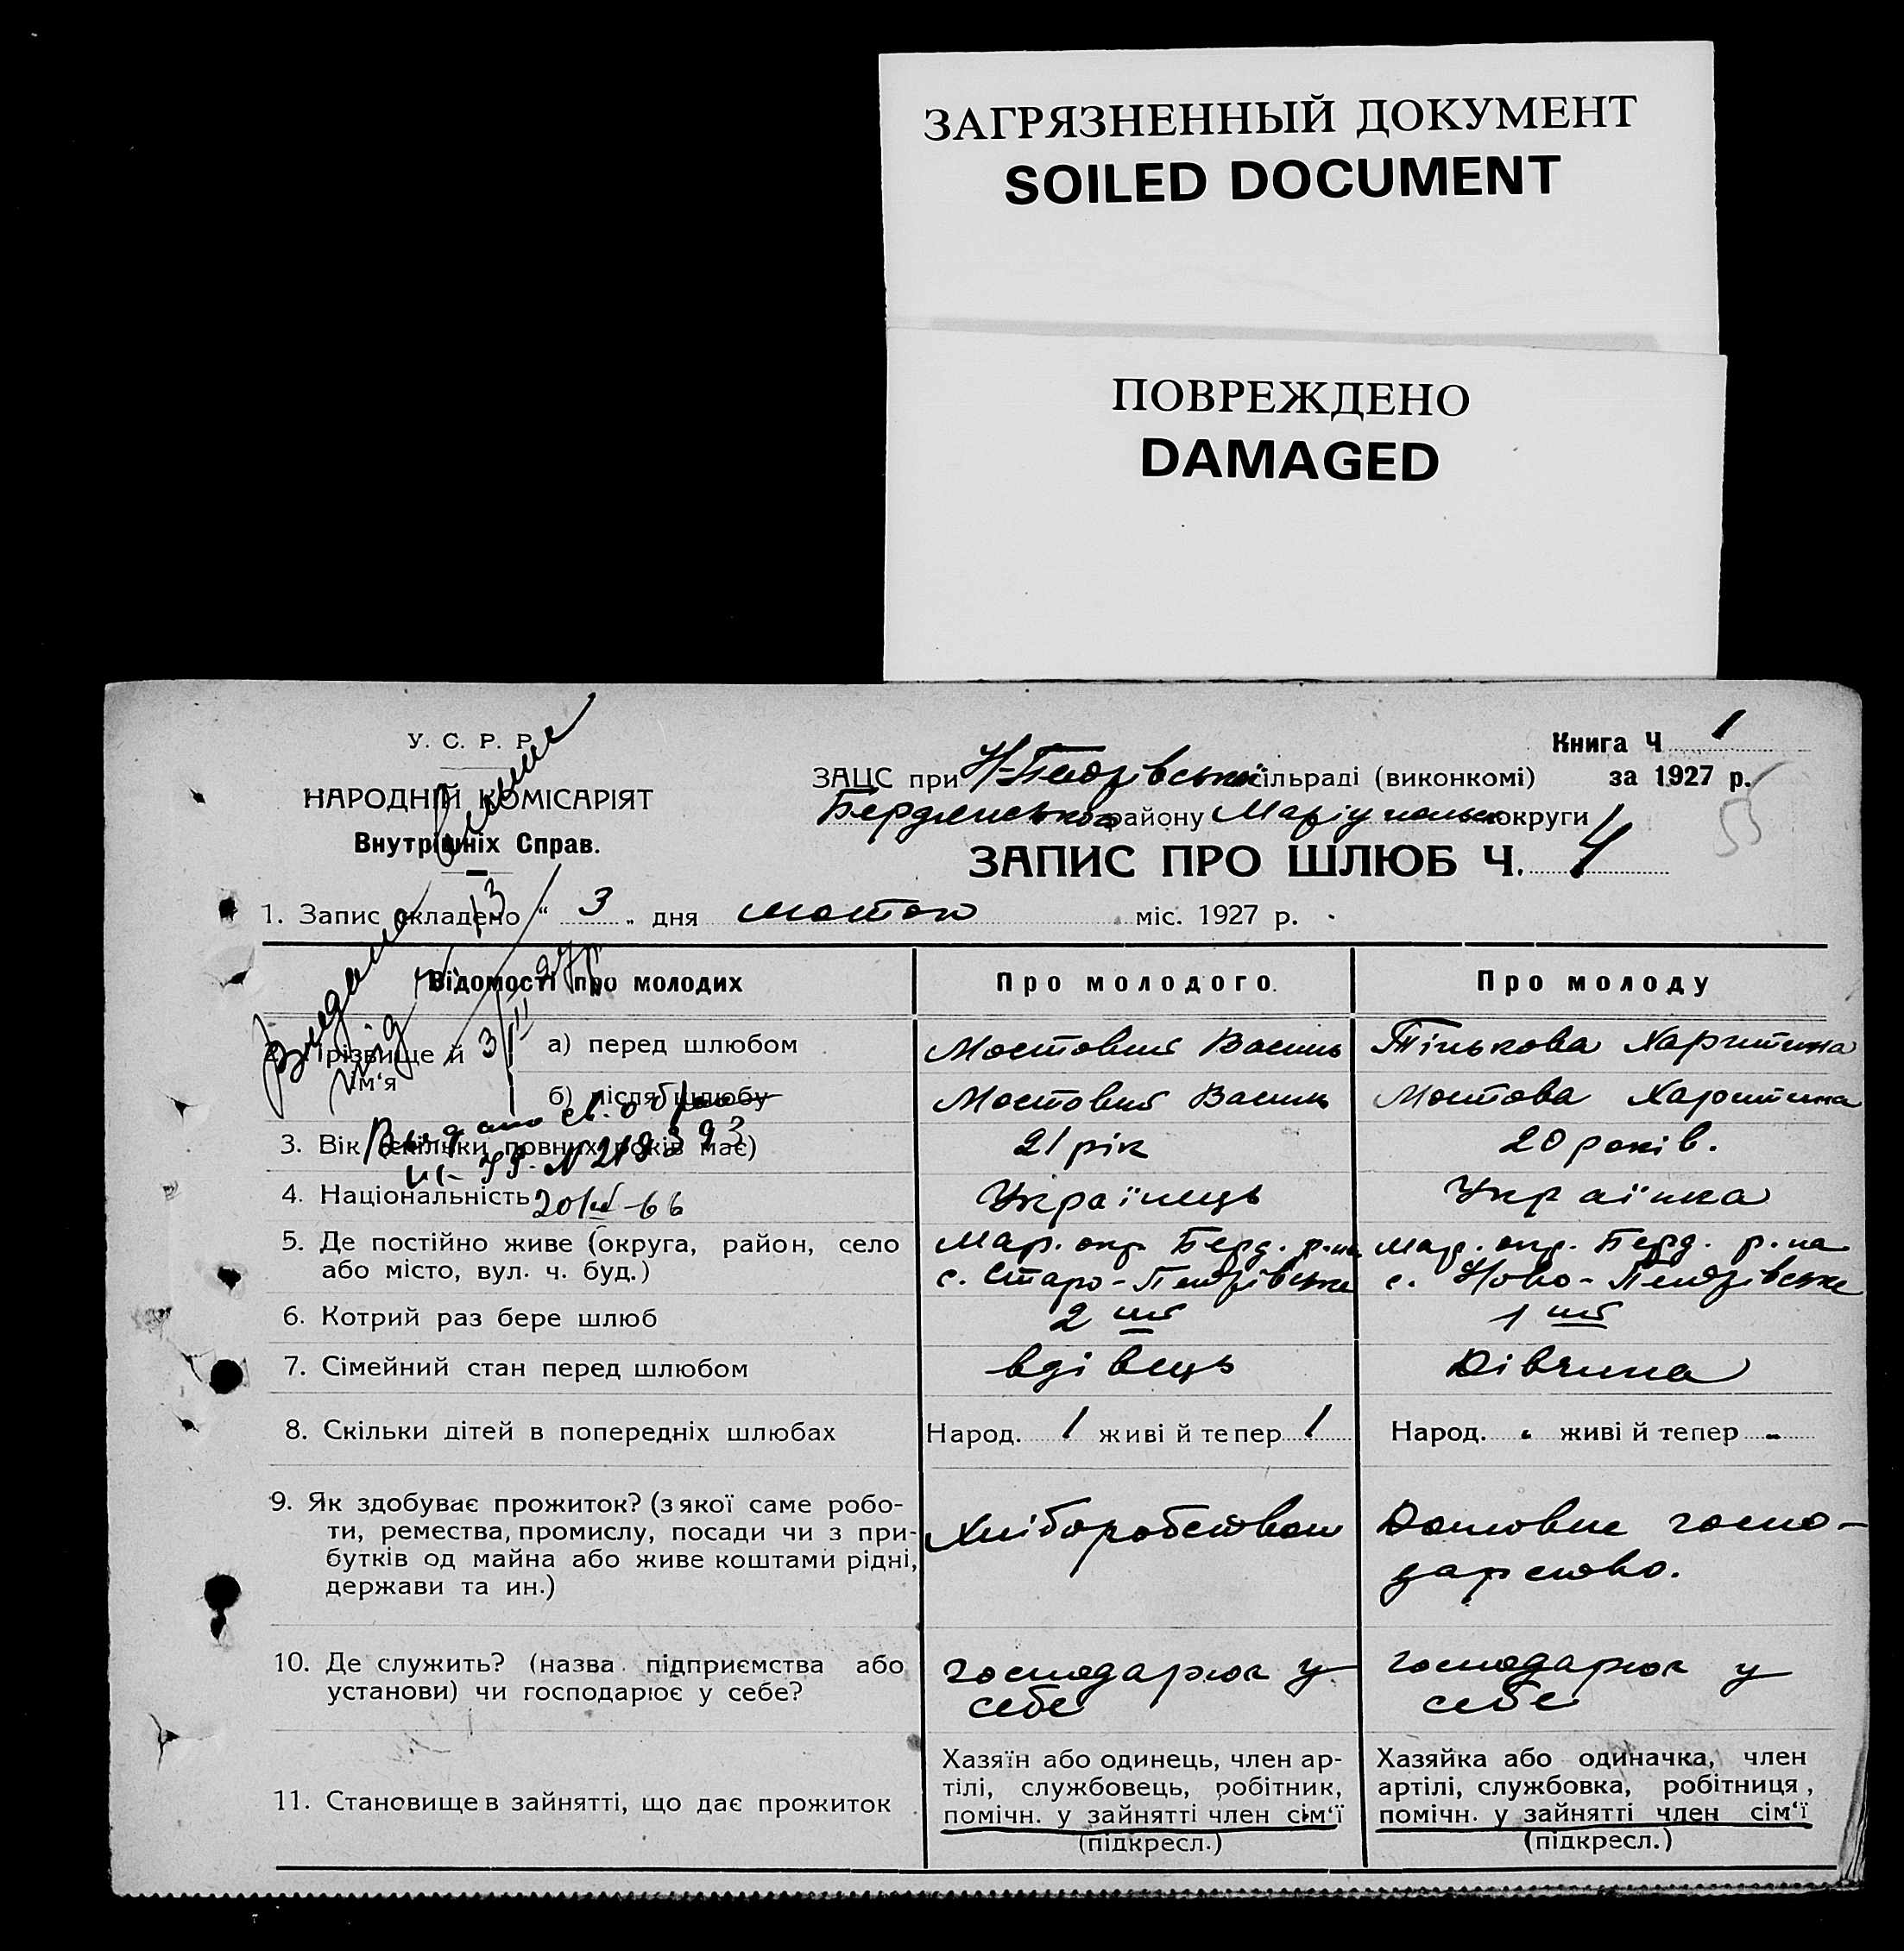 ЗАГРЯЗНЕННЫЙ ДОКУМЕНТ
SOILED DOCUMENT
ПОВРЕЖДЕНО
DAMAGED
У. С. Р. Р.
НАРОДНІЙ КОМІСАРІЯТ
Внутрішніх Справ.
Книга Ч 1
за 1927 р.
55
ЗАЦС при Н-Петрівській сільраді (виконкомі)
Бердянського району Маріупольск округи
ЗАПИС ПРО ШЛЮБ Ч. 4
1. Запис складено " 3 " дня лютого міс. 1927 р.
Відомості про молодих
Про молодого
Про молоду
2. Прізвище й ім'я
а) перед шлюбом
Мостовий Василь
Тінькова Харитина
б) після шлюбу
Мостовий Василь
Мостова Харитина
Видана
від
3/II 27р
Выдано св. о браке
№ 219393
20/ -66
3. Вік (скільки повних років має)
21 рік
20 років.
4. Національність
Українець
Українка
5. Де постійно живе (округа, район, село
або місто, вул. ч. буд.)
Мар. окр. Берд. р-на
с. Старо-Петрівське
Мар. окр. Берд. р-на
с. Ново-Петрівське
6. Котрий раз бере шлюб
2 ий
1 ий
7. Сімейний стан перед шлюбом
вдівець
Дівчина
8. Скільки дітей в попередніх шлюбах
Народ. 1 живі й тепер 1
Народ. - живі й тепер -
9. Як здобуває прожиток? (з якої саме робо-
ти, ремества, промислу, посади чи з при-
бутків од майна або живе коштами рідні,
держави та ин.)
Хліборобством
Домовне госпо-
дарство.
10. Де служить? (назва підприємства або
установи) чи господарює у себе?
господарює у
себе
господарює у
себе
11. Становище в зайнятті, що дає прожиток
Хазяїн або одинець, член ар-
тілі, службовець, робітник,
помічн. у зайнятті член сім'ї
(підкресл.)
Хазяйка або одиначка, член
артілі, службовка, робітниця,
помічн. у зайнятті член сім'ї
(підкресл.)